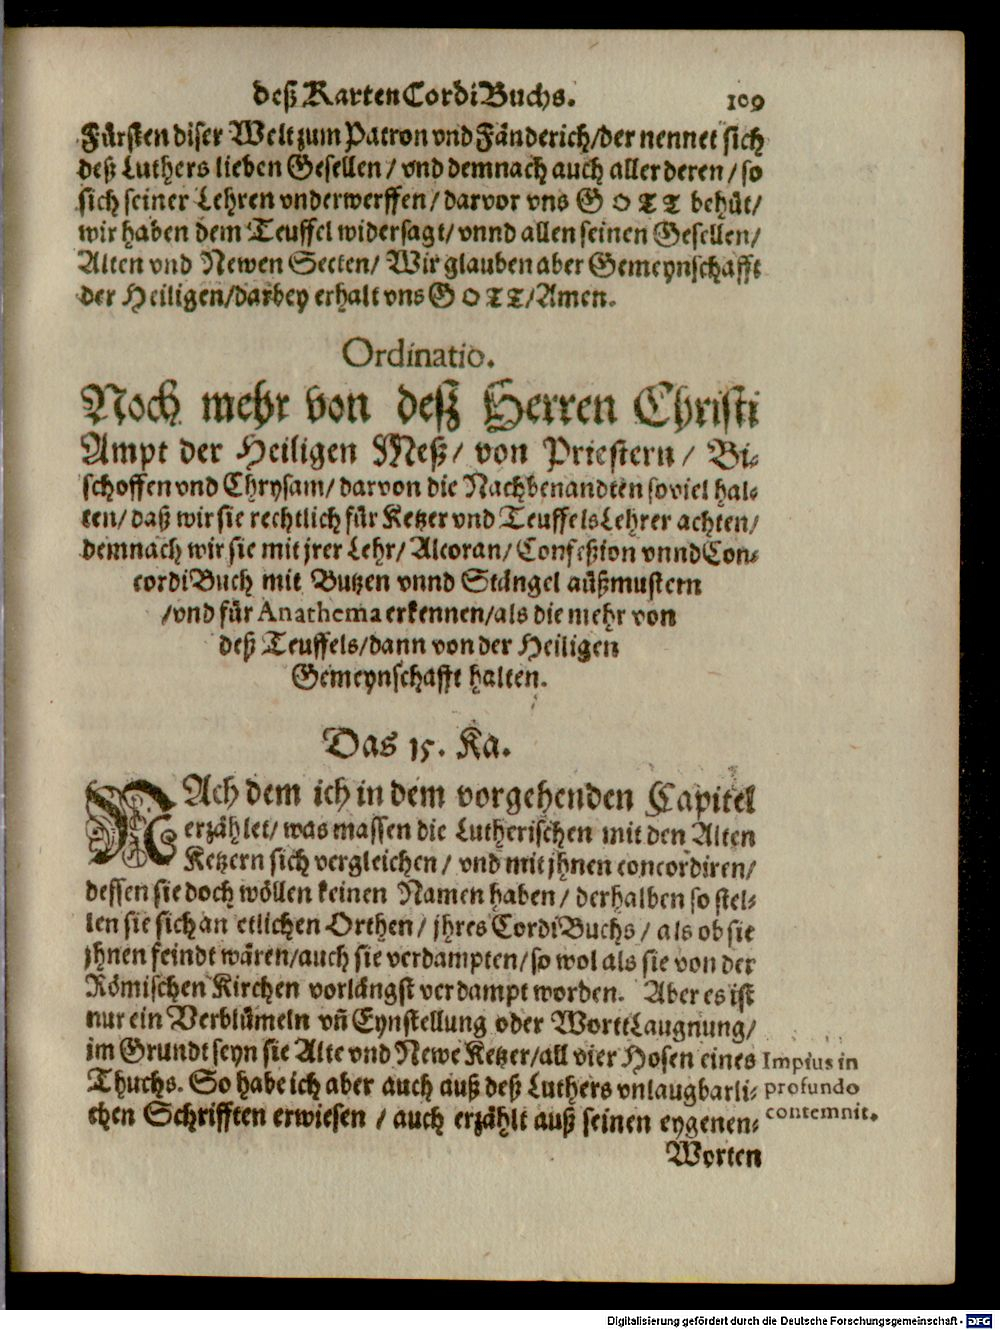 deß KartenCordiBuchs. 109
Fürsten diser Welt zum Patron vnd Fänderich/der nennet sich
deß Luthers lieben Gesellen/ vnd demnach auch aller deren/ so
sich seiner Lehren vnderwerffen/ darvor vns GOTT behüt/
wir haben dem Teuffel widersagt/ vnnd allen seinen Gesellen/
Alten vnd Newen Secten/ Wir glauben aber Gemeynschafft
der Heiligen/darbey erhalt vns GOTT/Amen.
Ordinatio.
Noch mehr von deß Herren Christi
Ampt der Heiligen Meß/ von Priestern/ Bi-
schoffen vnd Chrysam/ darvon die Nachbenandten soviel hal-
ten/ daß wir sie rechtlich für Ketzer vnd TeuffelsLehrer achten/
demnach wir sie mit jrer Lehr/ Alcoran/ Confeßion vnnd Con-
cordiBuch mit Butzen vnnd Stängel außmustern
/vnd für Anathema erkennen/als die mehr von
deß Teuffels/dann von der Heiligen
Gemeynschafft halten.
Das 15. Ka.
NAch dem ich in dem vorgehenden Capitel
erzählet/ was massen die Lutherischen mit den Alten
Ketzern sich vergleichen/ vnd mit jhnen concordiren/
dessen sie doch wöllen keinen Namen haben/ derhalben so stel-
len sie sich an etlichen Orthen/ jhres CordiBuchs/ als ob sie
jhnen feindt wären/auch sie verdampten/so wol als sie von der
Römischen Kirchen vorlängst verdampt worden. Aber es ist
nur ein Verblümeln vñ Eynstellung oder WorttLaugnung/
im Grundt seyn sie Alte vnd Newe Ketzer/all vier Hosen eines
Thuchs. So habe ich aber auch auß deß Luthers vnlaugbarli-
chen Schrifften erwiesen/ auch erzählt auß seinen eygenen-
Worten
Impius in
profundo
contemnit.
Digitalisierung gefördert durch die Deutsche Forschungsgemeinschaft - DFG